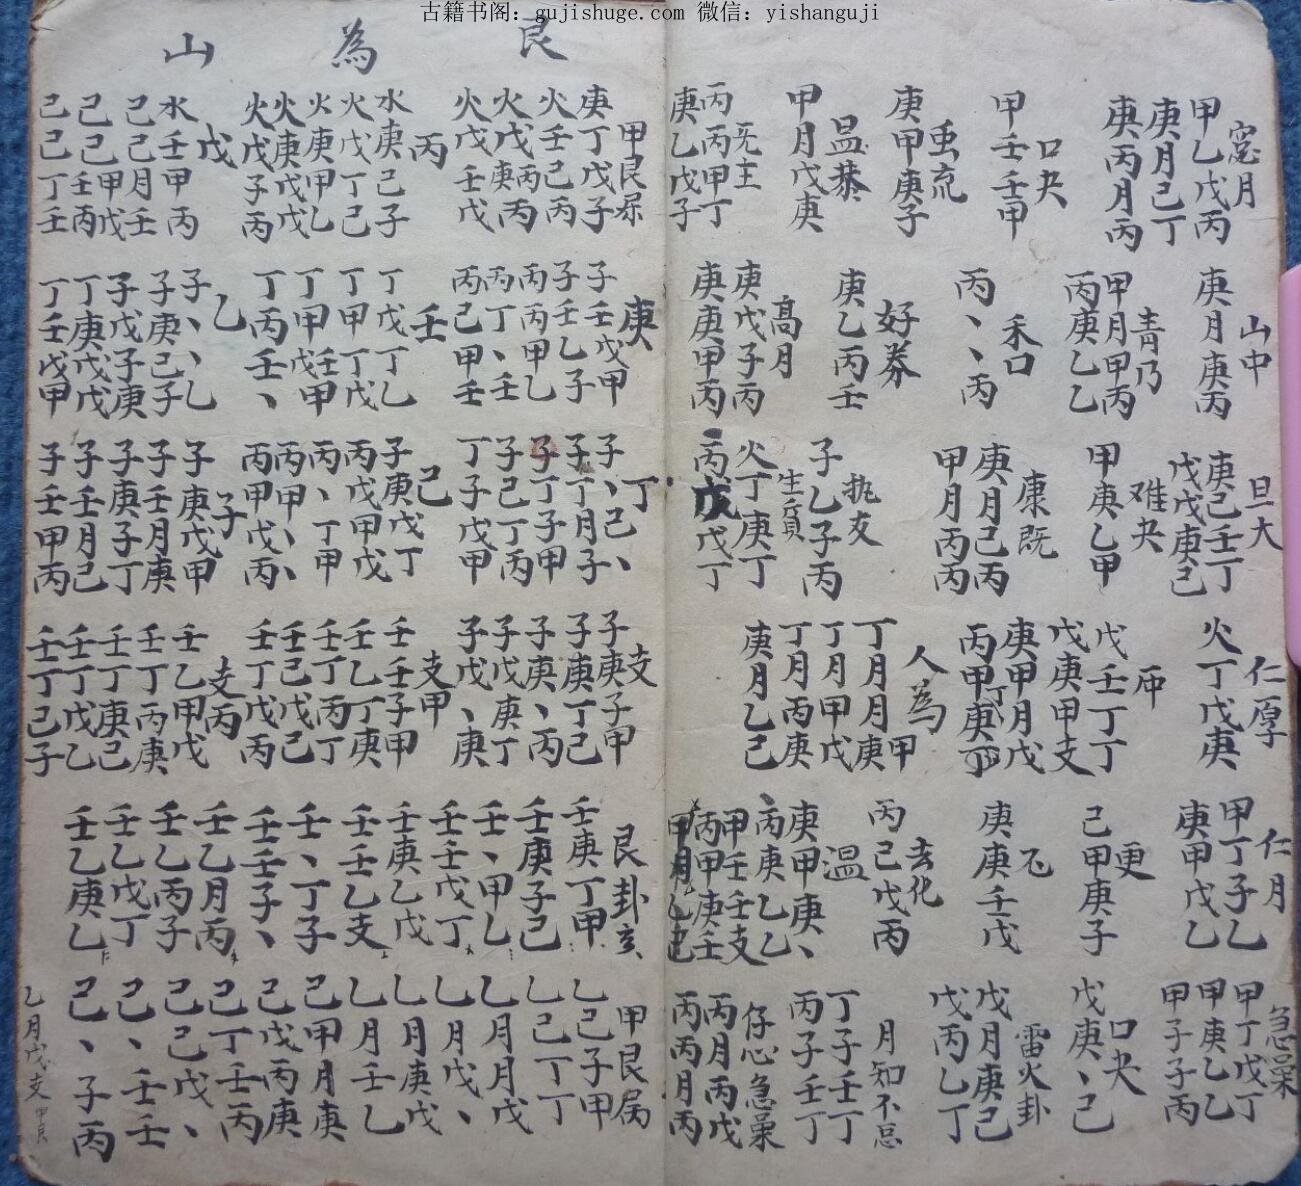 古籍书阁：gujishuge.com 微信：yishanguji
窓月
甲乙戊丙
庚月己丁
庚丙月丙
口夬
甲壬壬甲
虫流
庚甲庚子
昷恭
甲月戊庚
旡主
丙丙甲丁
庚乙戊子
山中
庚月庚丙
青乃
甲月甲丙
丙庚乙乙
禾口
丙、、丙
好券
庚乙丙壬
高月
庚戊子丙
庚庚甲丙
旦大
庚己壬丁
戊戊庚己
难夬
甲庚乙甲
康既
庚月己丙
甲月丙丙
执友
子乙子丙
生員
火丁庚丁
丙戊戊丁
仁原
火丁戊庚
戊壬丁丁
戊庚甲支
庚甲月戊
人為
丁月月庚甲
丁月甲戊
丁月丙庚
庚月乙己
仁月
甲丁子乙
庚甲戊乙
更
己甲庚子
庚庚壬戊
去化
丙己戊丙
温
庚甲庚、
丙庚乙乙
甲壬壬支
丙甲庚壬
急喿
甲丁戊丁
甲庚乙乙
甲子子丙
口夬
戊庚、己
雷火卦
戊月庚己
戊丙乙丁
月知不忘
丁子壬丁
丙子壬丁
仔心急喿
丙月丙戊
丙丙月丙
艮為山
甲艮屬
庚丁戊子
火壬己丙
火戊庚丙
火戊壬戊
丙
水庚己子
火戊丁己
火庚甲乙
火庚戊戊
火戊子丙
戊
水壬甲丙
己己月壬
己己甲戊
己己壬丙
己己丁壬
庚
子壬戊甲
子壬乙子
丙丙甲乙
丙丁、壬
丙己甲壬
壬
丁戊丁乙
丁甲丁戊
丁甲壬甲
丁丙壬、
乙
子、、乙
子庚己子
子戊子庚
丁庚戊戊
丁壬戊甲
丁
子、己、
子丁月子
子丁子甲
子己丁丙
丁子戊甲
己
子庚戊丁
丙戊甲戊
丙、丁甲
丙甲、、
丙甲戊丙
子
子庚戊甲
子壬月庚
子庚子丁
子壬月己
子壬甲丙
支
子庚子甲
子庚丁己
子庚、丙
子戊庚丁
子戊、庚
支甲
壬壬子甲
壬乙丁庚
壬丁丙丁
壬己戊己
壬丁戊丙
支丙
壬乙甲戊
壬丁丙庚
壬丁庚己
壬丁戊乙
壬丁己子
艮卦亥
壬庚丁甲
壬庚子己
壬、甲乙
壬壬戊丁
壬庚乙戊
壬壬乙支
壬、丁子
壬壬子、
壬乙月丙
壬乙丙子
壬乙戊丁
壬乙庚乙
甲艮屬
乙己子甲
乙己丁丁
乙月月戊
乙月戊、
乙月庚戊
乙月壬乙
己甲月庚
己戊丙庚
己丁壬丙
己己戊、
己、壬壬
己、子丙
乙月戊支